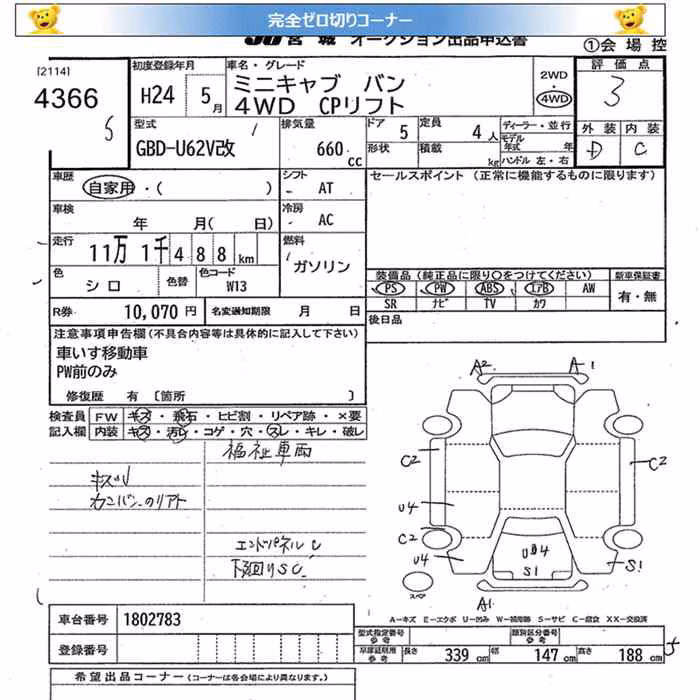 完全ゼロ切りコーナー
JU宮城 オークション出品申込書
①会場控
[2114]
4366
初度登録年月
H24 5月
車名・グレード
ミニキャブ バン
4WD CPリフト
2WD
・
4WD
評価点
3
型式
GBD-U62V改
排気量
660 cc
ドア 5
定員 4人
形状
積載 kg
ディーラー・並行
モデル年式 年
ハンドル 左・右
外装 内装
D C
車歴
自家用・( )
シフト
AT
セールスポイント (正常に機能するものに限ります)
車検
年 月( 日)
冷房
AC
走行
11万 1千 4 8 8 km
燃料
ガソリン
色
シロ
色替
色コード
W13
装備品(純正品に限り○をつけてください)
新車保証書
PS PW ABS エアB AW
SR ナビ TV カワ
有・無
R券 10,070 円
名変通知期限 月 日
後日品
注意事項申告欄(不具合内容等は具体的に記入して下さい)
車いす移動車
PW前のみ
修復歴 有 [箇所 ]
検査員 FW キズ・飛石・ヒビ割・リペア跡・×要
記入欄 内装 キズ・汚レ・コゲ・穴・スレ・キレ・破レ
福祉車両
エンドパネルC
下回りSC
A2 A1
C2 C2
U4
C2
U4 S1
S1
A1
スペア
A-キズ E-エクボ U-凹み W-補修跡 S-サビ C-腐食 XX-交換済
車台番号 1802783
登録番号
型式指定番号 参考
類別区分番号 参考
車庫証明用 参考 長さ 339 cm 幅 147 cm 高さ 188 cm
希望出品コーナー(コーナーは各会場により異なります。)